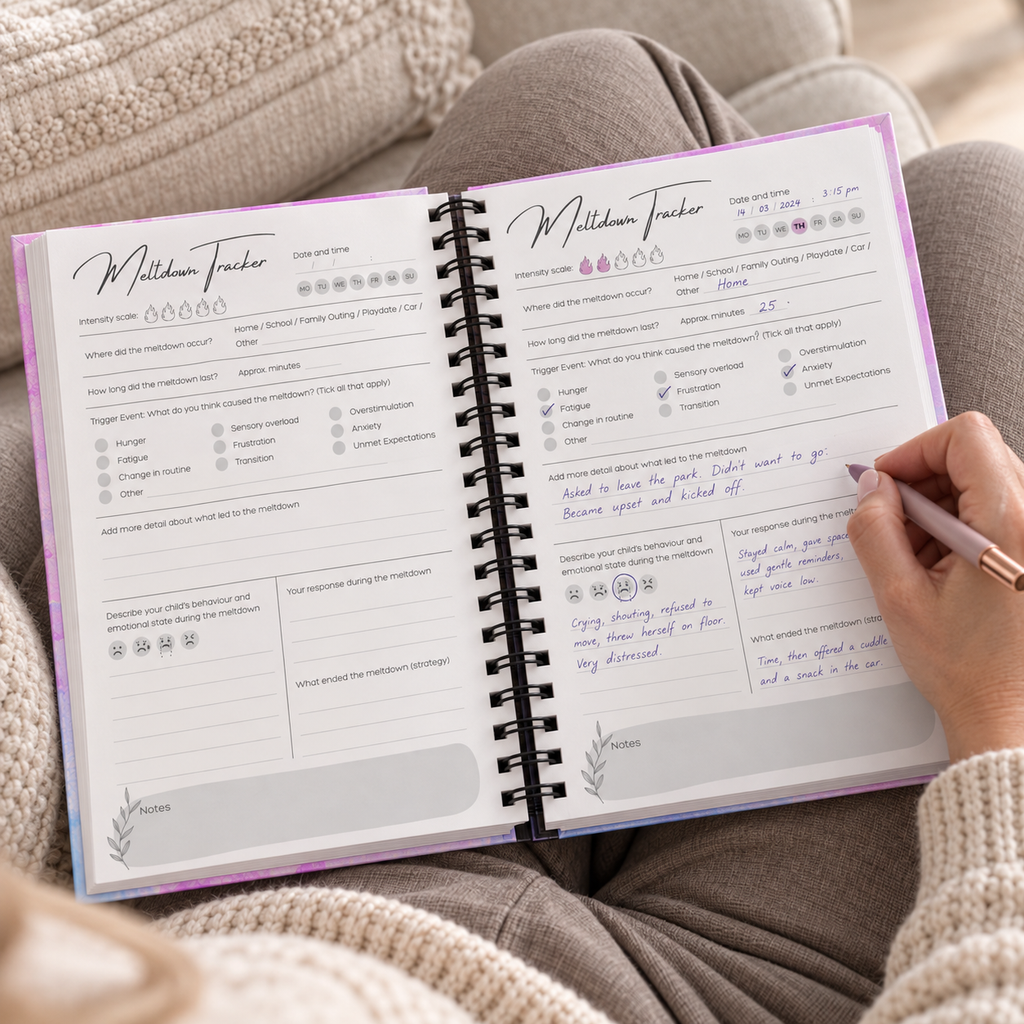 Meltdown Tracker
Date and time
/ / :
MO TU WE TH FR SA SU
Intensity scale:
Where did the meltdown occur?
Home / School / Family Outing / Playdate / Car /
Other
How long did the meltdown last? Approx. minutes
Trigger Event: What do you think caused the meltdown? (Tick all that apply)
Hunger Sensory overload Overstimulation
Fatigue Frustration Anxiety
Change in routine Transition Unmet Expectations
Other
Add more detail about what led to the meltdown
Describe your child's behaviour and
emotional state during the meltdown
Your response during the meltdown
What ended the meltdown (strategy)
Notes
Meltdown Tracker
Date and time
14 / 03 / 2024 : 3:15 pm
MO TU WE TH FR SA SU
Intensity scale:
Where did the meltdown occur?
Home / School / Family Outing / Playdate / Car /
Other Home
How long did the meltdown last? Approx. minutes 25
Trigger Event: What do you think caused the meltdown? (Tick all that apply)
Hunger Sensory overload Overstimulation
Fatigue Frustration Anxiety
Change in routine Transition Unmet Expectations
Other
Add more detail about what led to the meltdown
Asked to leave the park. Didn't want to go:
Became upset and kicked off.
Describe your child's behaviour and
emotional state during the meltdown
Crying, shouting, refused to
move, threw herself on floor.
Very distressed.
Your response during the
Stayed calm, gave space
used gentle reminders,
kept voice low.
What ended the meltdown
Time, then offered a cuddle
and a snack in the car.
Notes